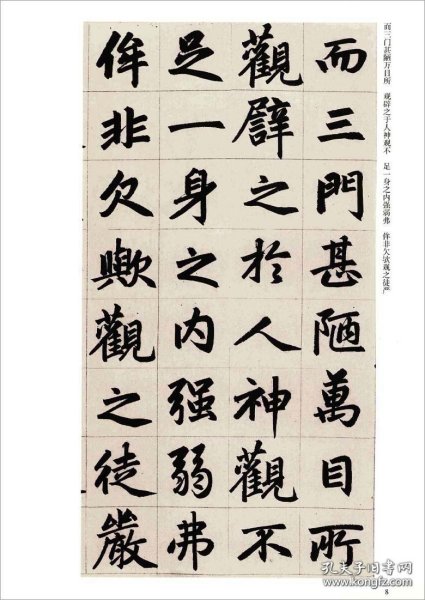 而三門甚陋萬目所
觀譬之於人神觀不
足一身之内强弱弗
侔非欠歟觀之徒嚴
而三门甚陋万目所 观辟之于人神观不 足一身之内强弱弗 侔非欠欤观之徒严
8
孔夫子旧书网
www.kongfz.com